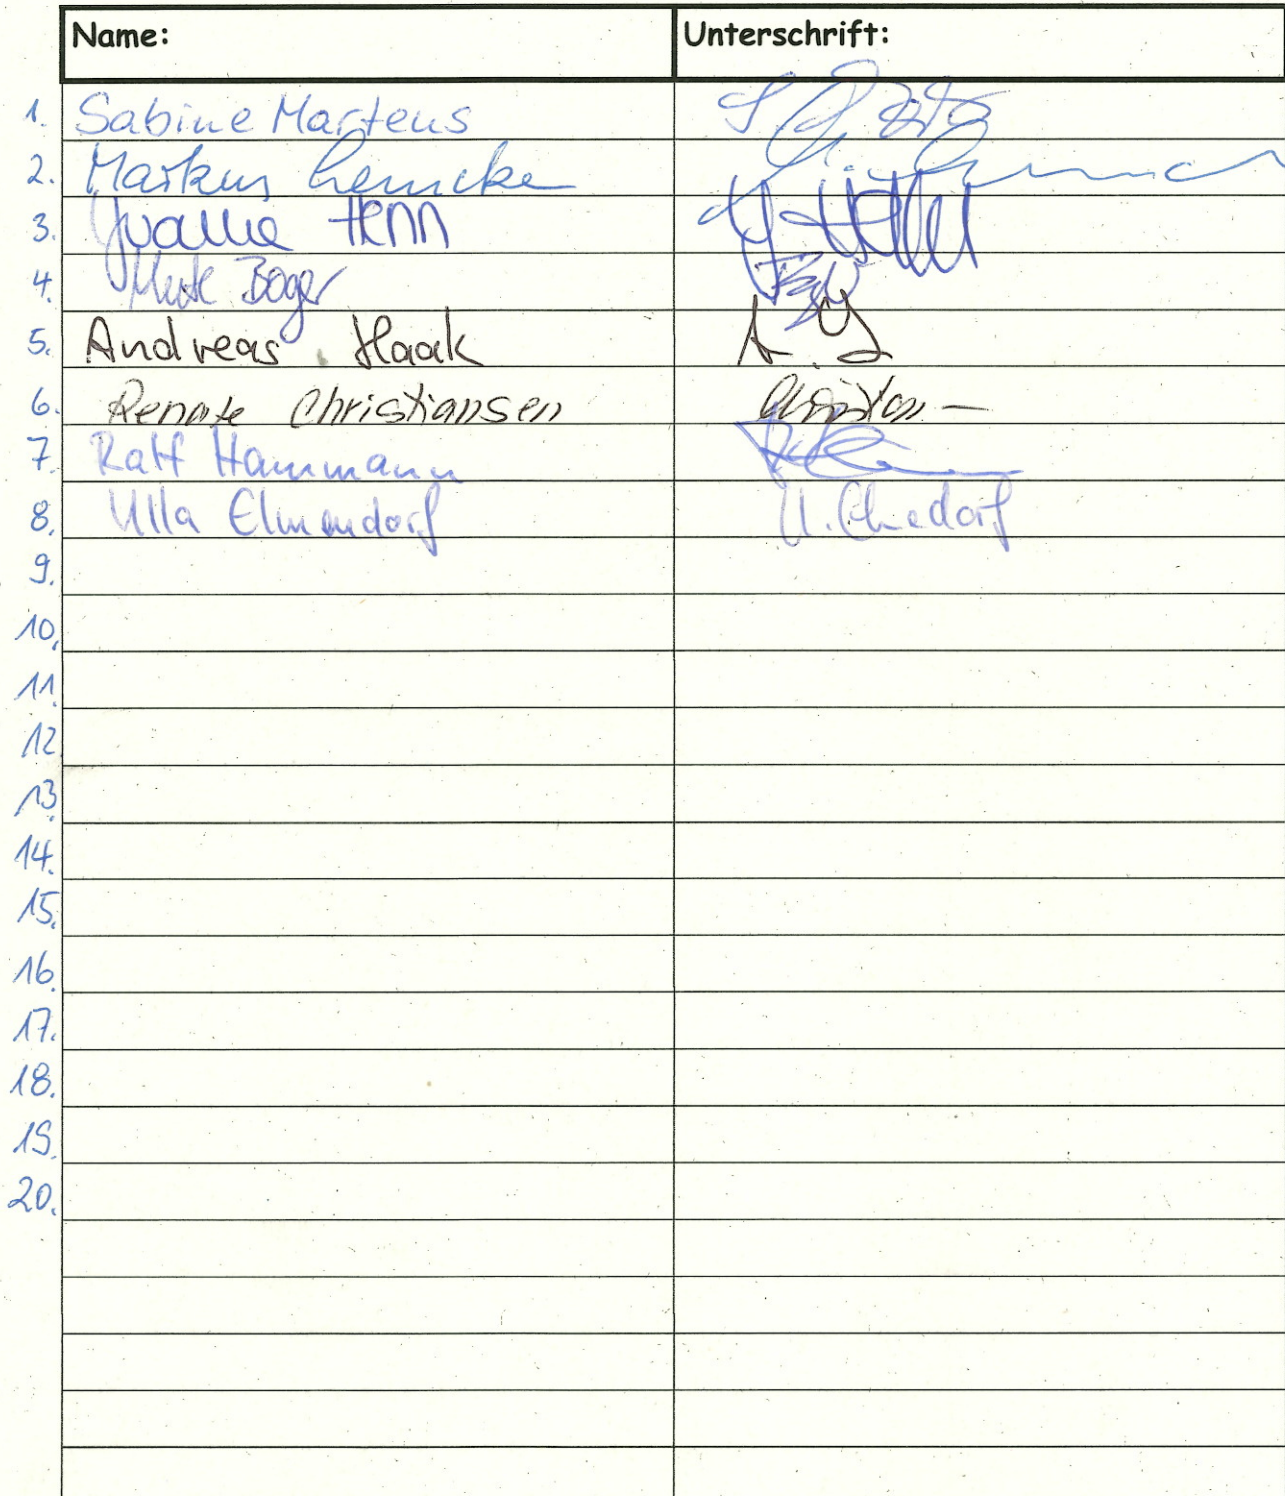 Name: Unterschrift:
1. Sabine Martens
2. Markus Lemcke
3. Yvonne Henn
4. Boger
5. Andreas Haak
6. Renate Christiansen
7. Ralf Hammann
8. Ulla Elmendorf U. Elmendorf
9.
10.
11.
12.
13.
14.
15.
16.
17.
18.
19.
20.